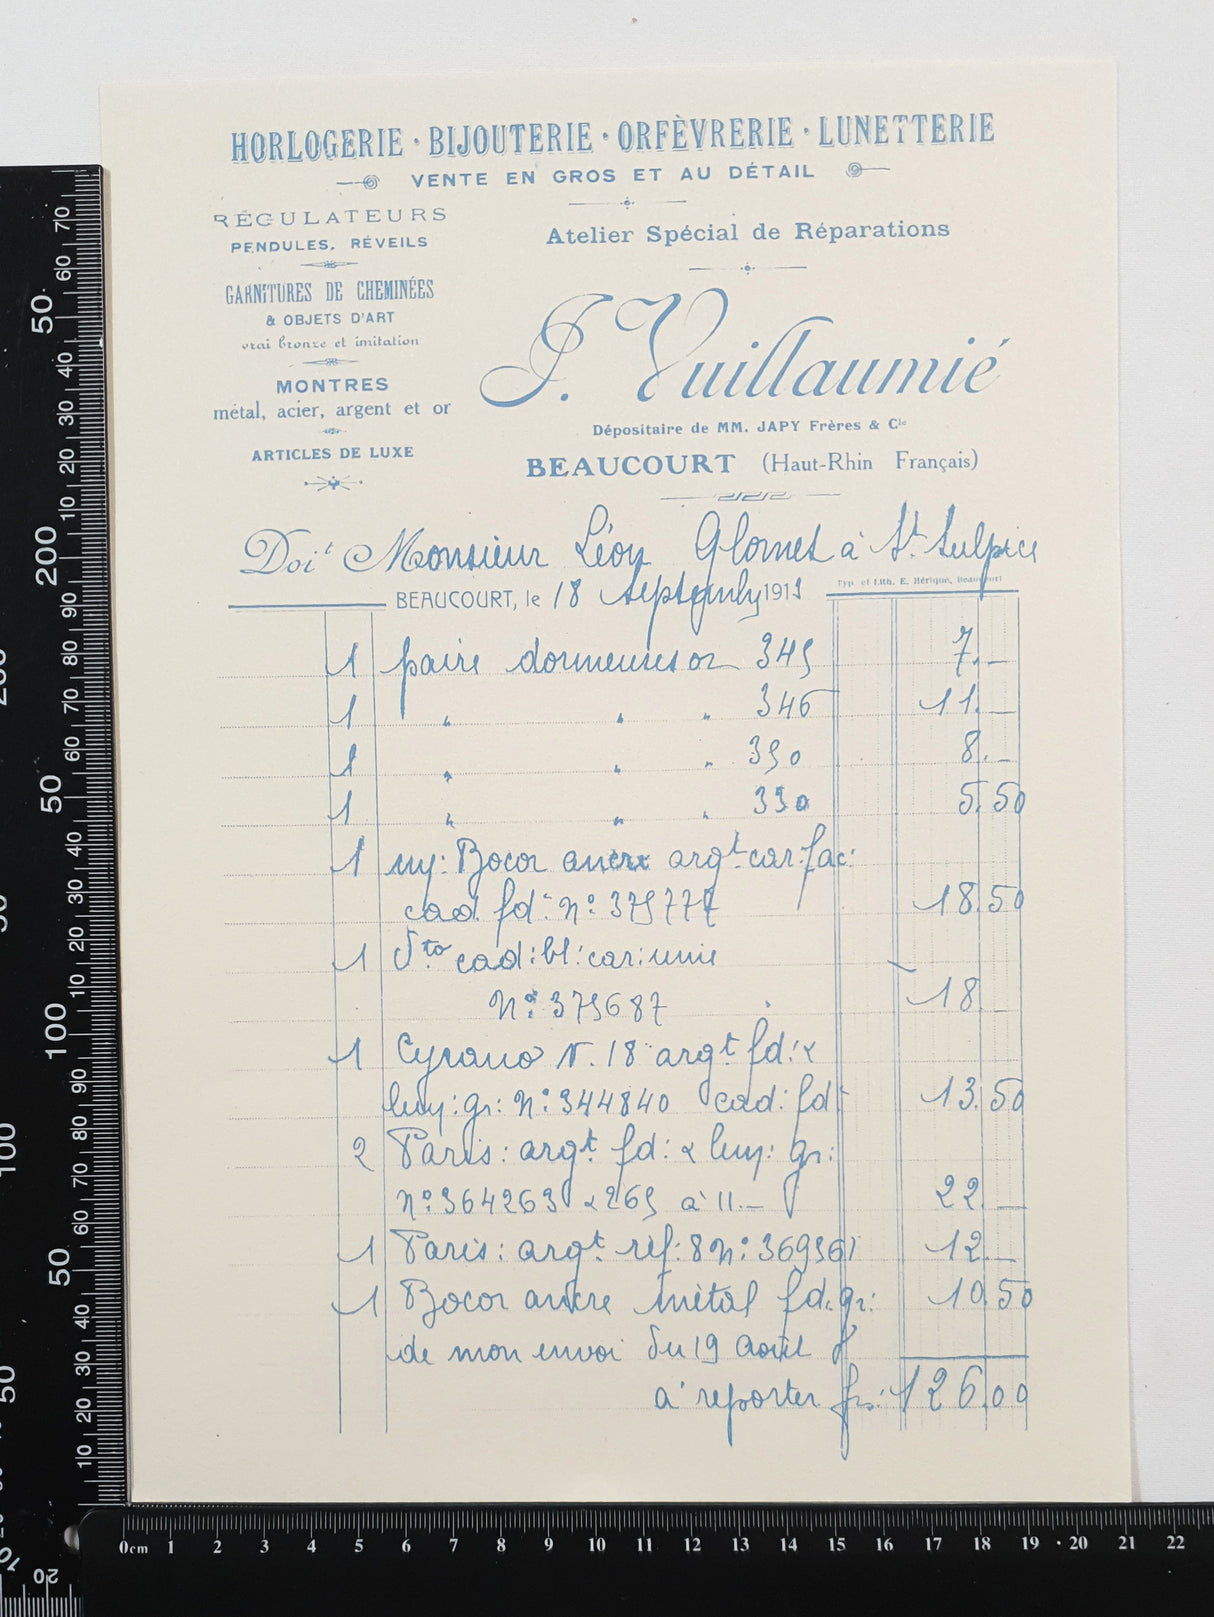 HORLOGERIE · BIJOUTERIE · ORFÈVRERIE · LUNETTERIE
VENTE EN GROS ET AU DÉTAIL
RÉGULATEURS
PENDULES, RÉVEILS
GARNITURES DE CHEMINÉES
& OBJETS D'ART
vrai bronze et imitation
MONTRES
métal, acier, argent et or
ARTICLES DE LUXE
Atelier Spécial de Réparations
J. Vuillaumié
Dépositaire de MM. JAPY Frères & Cie
BEAUCOURT (Haut-Rhin Français)
Doit Monsieur Léon Glomet à St. Sulpice
Typ et Lith. E. Hérique, Beaucourt
BEAUCOURT, le 18 septembre 1913
1 paire dormeuses or 345 7.—
1 " " " 346 11.—
1 " " " 350 8.—
1 " " " 350 5.50
1 Bocor ancre argt car: fac:
cad. fd: No: 375777 18.50
1 dto cad: bl: car: unie
No: 375687 18
1 Cyrano N. 18 argt fd: &
luy: gr: No: 344840 cad: fd 13.50
2 Paris: argt. fd: & luy: gr:
No: 364263 & 265 à 11.— 22.—
1 Paris: argt réf: 8 No: 369361 12.—
1 Bocor ancre métal fd. gr: 10.50
de mon envoi du 19 août
à reporter frs: 126.00
0cm 1 2 3 4 5 6 7 8 9 10 11 12 13 14 15 16 17 18 19 20 21 22